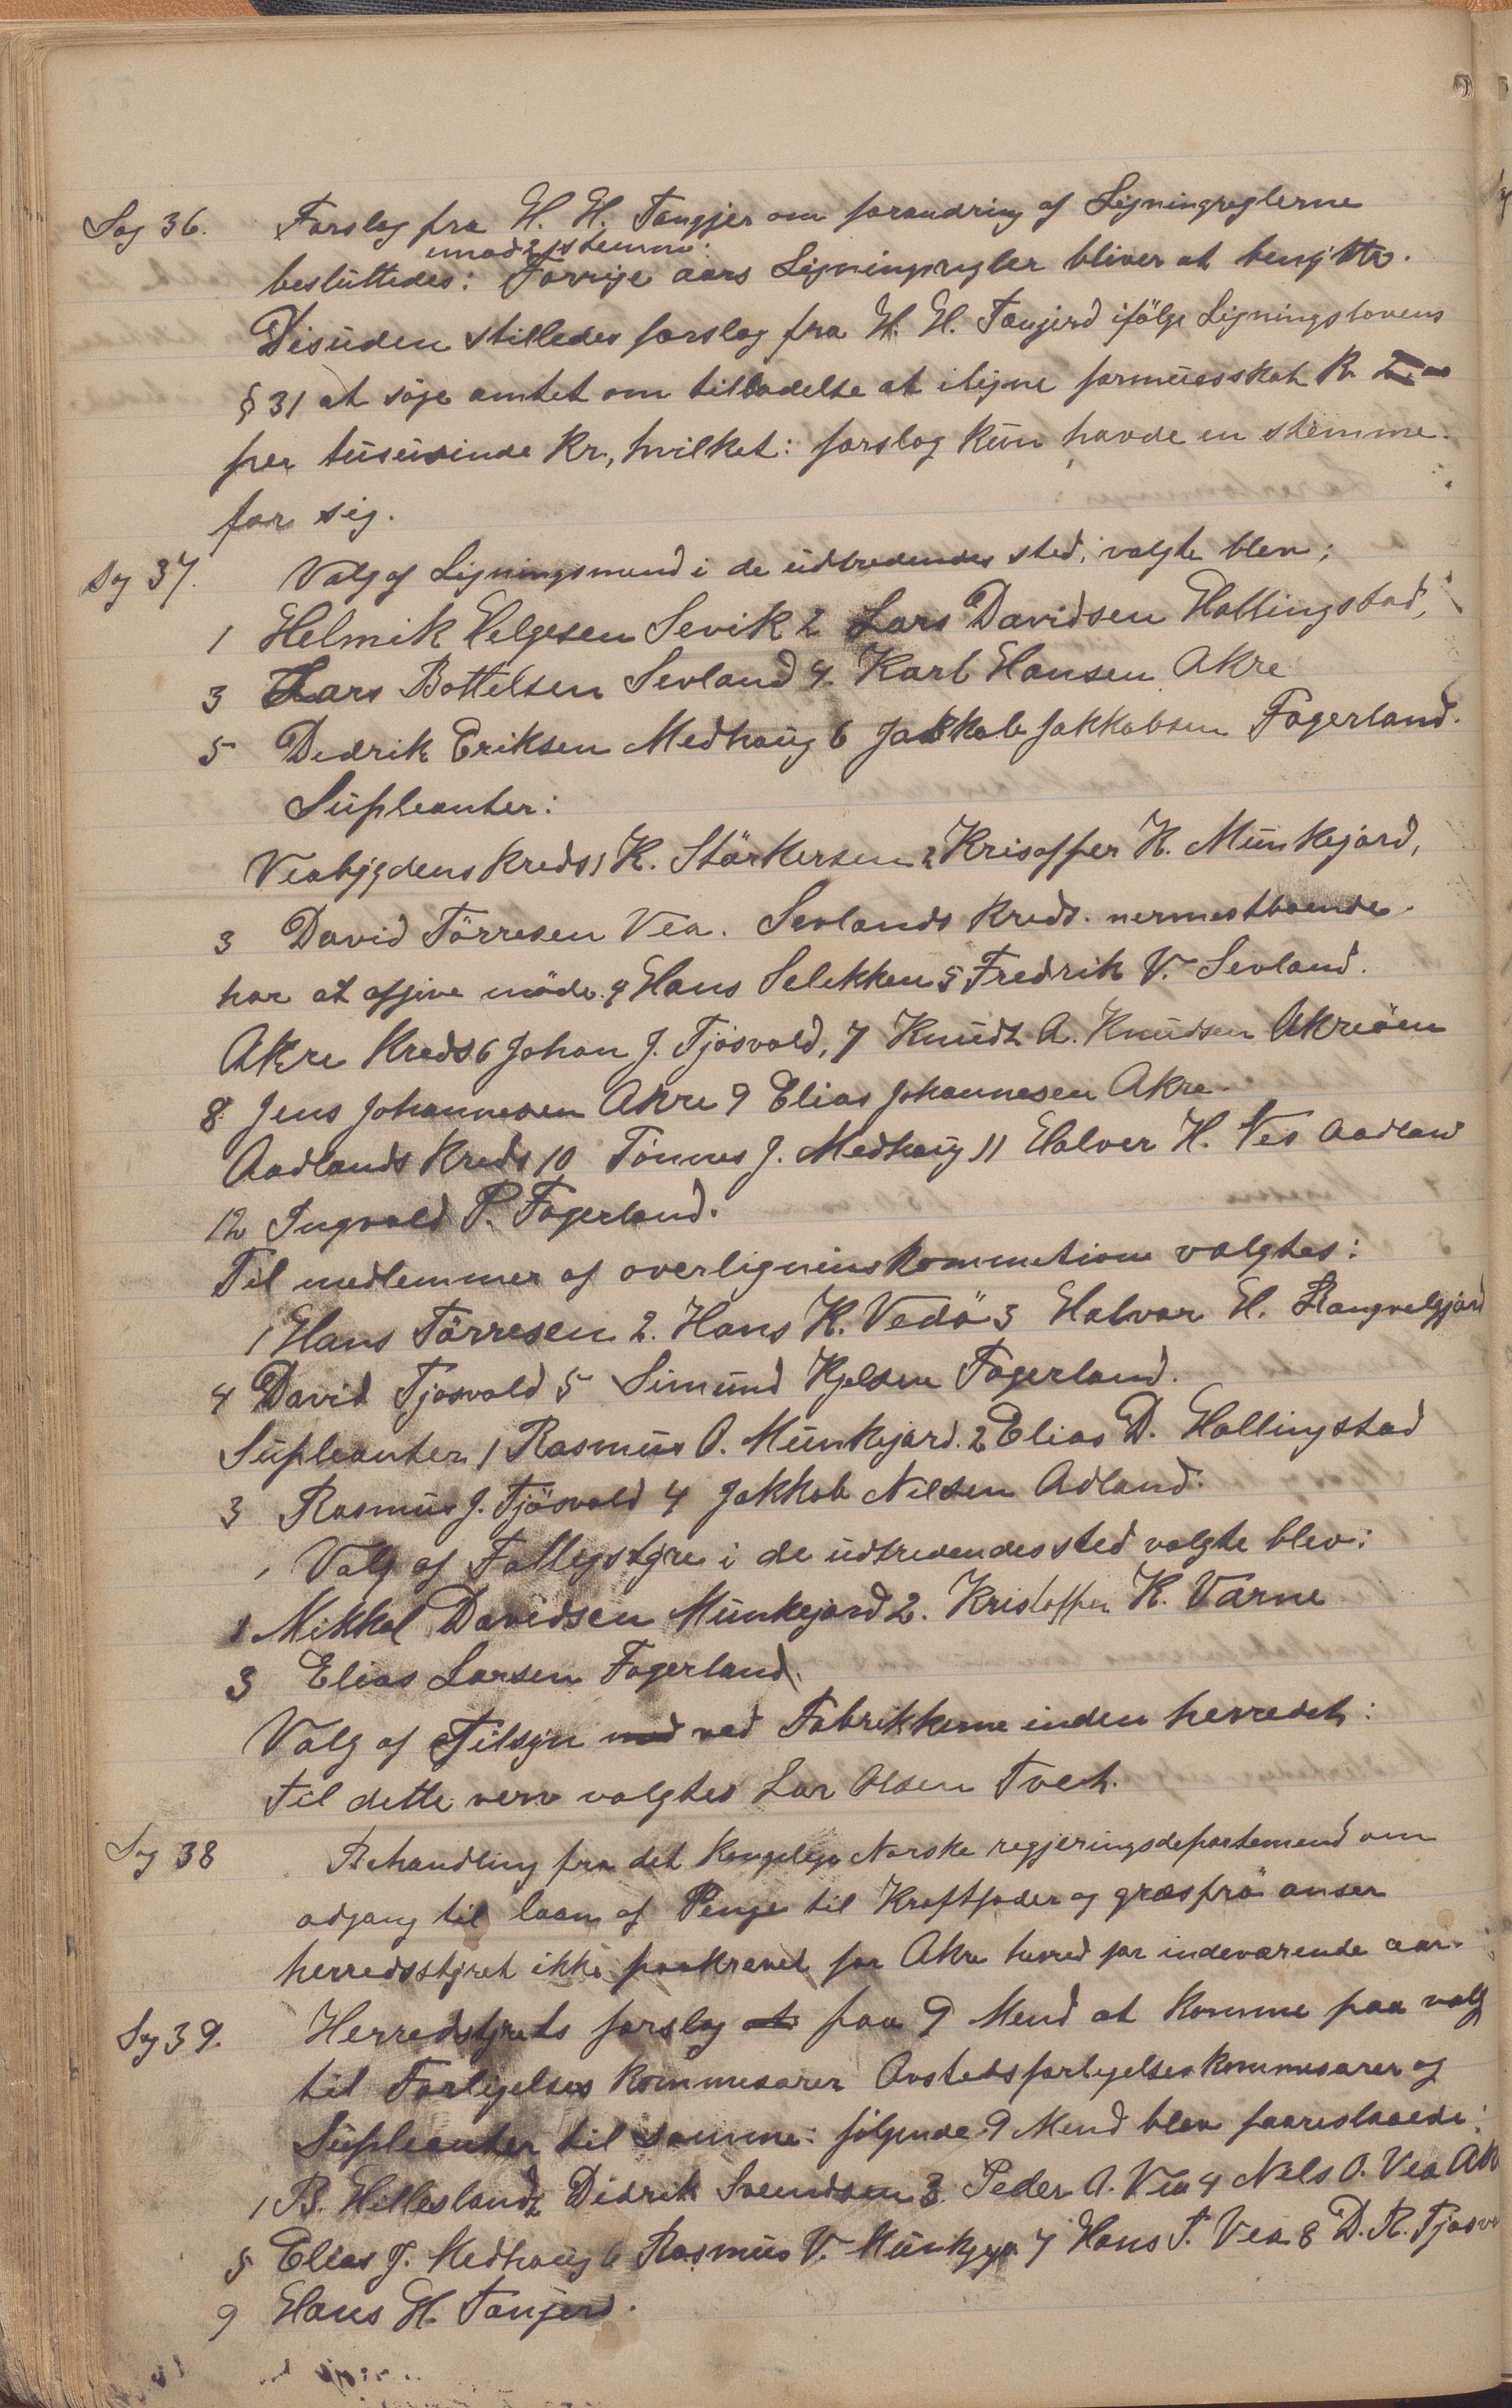 Sag 36. Forslag fra H. H. Tangjer om forandring af Ligningreglerne
mod 2 stemme:
besluttedes: Forrige aars Ligningregler bliver at benytte.
Desuden stilledes forslag fra H. H. Tangjerd ifölge Ligningslovens
§ 31 at söge amtet om tilladelse at iligne formuesskat Kr.
per tusuinde Kr, hvilket: forslag kun havde en stemme.
for sig.
Sag 37. Valg af Ligningsmend i de udtredendes sted, valgte blev;
1 Helmik Helgesen Sevik 2 Lars Davidsen Hallingstad,
3 Lars Bottelsen Sevland 4. Karl Hansen Akre
5 Dedrik Eriksen Medhaug 6 Jakkob Jakkobsen Fagerland.
Supleanter:
Veabygdens Kreds 1 K. Störkersen 2 Krisoffer K. Munkejord,
3 David Törresen Vea. Sevlands Kreds. nermestboende.
har at afgive möde. 4 Hans Selekken 5 Fredrik V. Sevland.
Akre Kreds 6 Johan J. Tjösvold, 7 Knudt A. Knudsen Akreöen
8. Jens Johannesen Akre 9 Elias Johannesen Akre.
Aadlands Kreds 10 Tönnes J. Medhaug 11 Halver H. Nes Aadland
12 Ingvald P. Fagerland.
Til medlemmer af overligninskommetione valgtes:
1 Hans Törresen 2. Hans K. Vedö 3 Halvor H. Langvelgjard
4 David Tjosvold 5 Simund Kjelsen Fagerland.
Supleanter 1 Rasmus O. Munkejord. 2 Elias D. Hallingstad
3 Rasmus J. Tjösvold 4 Jakkob Nilsen Adland.
Valg af Fattigstyre i de udtredendes sted valgte blev:
1 Mikkel Davidsen Munkejord 2. Kristoffer K. Varne
3 Elias Larsen Fagerland.
Valg af Tilsyn med ved Fabrikkerne inden herredet:
Til dette verv valgtes Lar Olsen Tvet.
Sag 38 Behandling fra det Kongelige Norske regjeringsdepartemend om
adgang til laan af Penge til Kraftfoder og græsfrö anser
herredsstyret ikke paakrævet for Akre herred for indeværende aar.
Sag 39. Herredstyrets forslag at paa 9 Mend at komme paa valg
til Forligelses kommesarer Avstedsforligelseskommesarer og
Supleanter til samme: følgende 9 Mend blev foareslaaede:
1 B. Hillesland 2 Didrik Svendsen 3. Peder A. Vea 4 Nils O. Vea Ak
5 Elias J. Medhaug 6 Rasmus V. Munkejo 7 Hans T. Vea 8 D. R. Tjosvo
9 Hans H. Tanjerd.